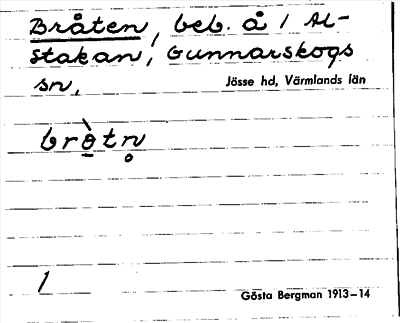 Bråten, beb. å 1 Al-
stakan, Gunnarskogs
sn,
Jösse hd, Värmlands län
brὸ̱tn̥
1
Gösta Bergman 1913–14